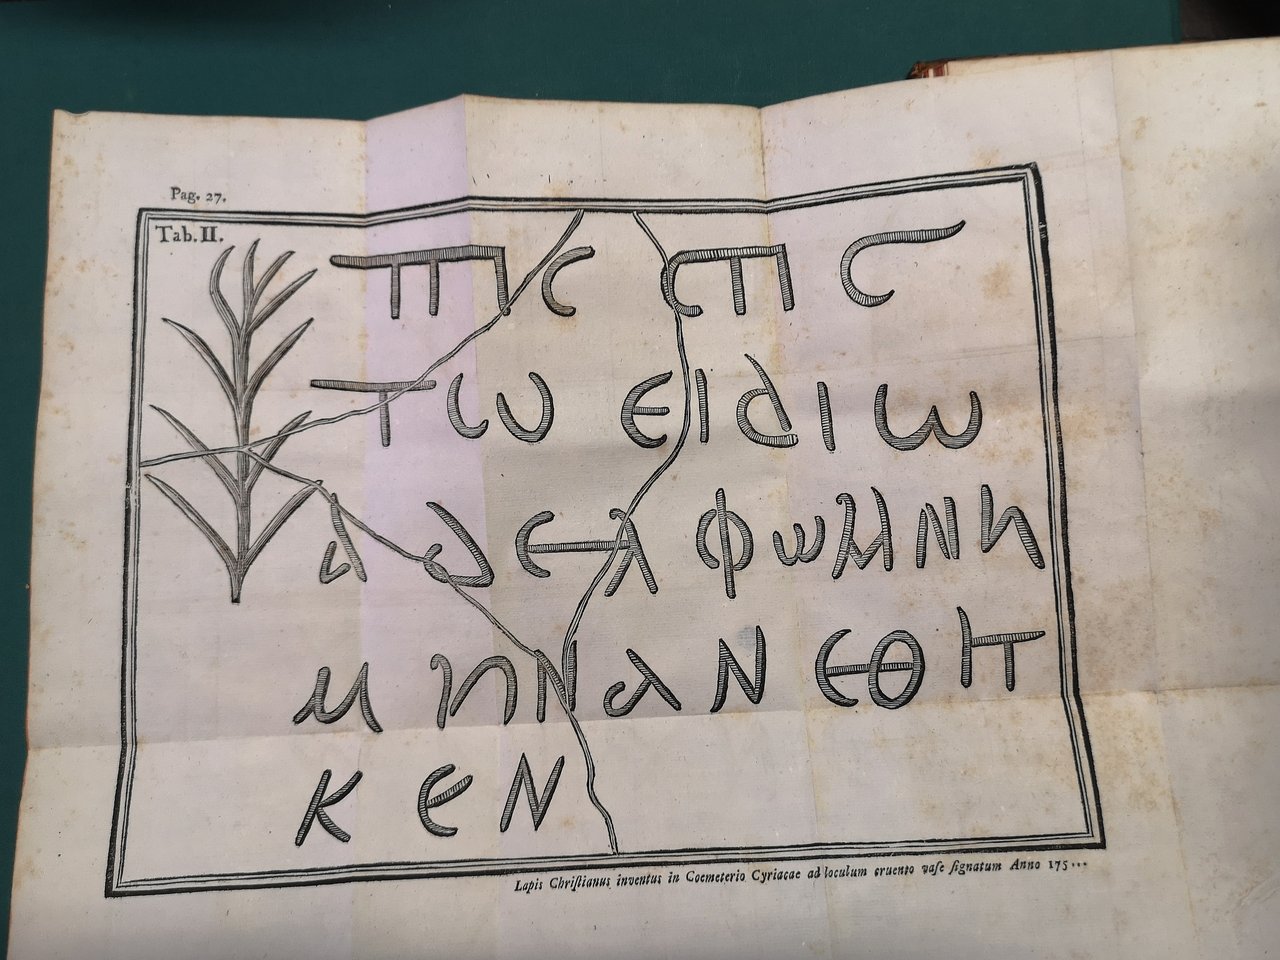 Pag. 27.
Tab. II.
τω ειδιω
αδελφωμνη
μηΝαΝ εθη
κ ε Ν
Lapis Chriſtianus inventus in Coemeterio Cyriacae ad loculum cruento vaſe ſignatum Anno 175...